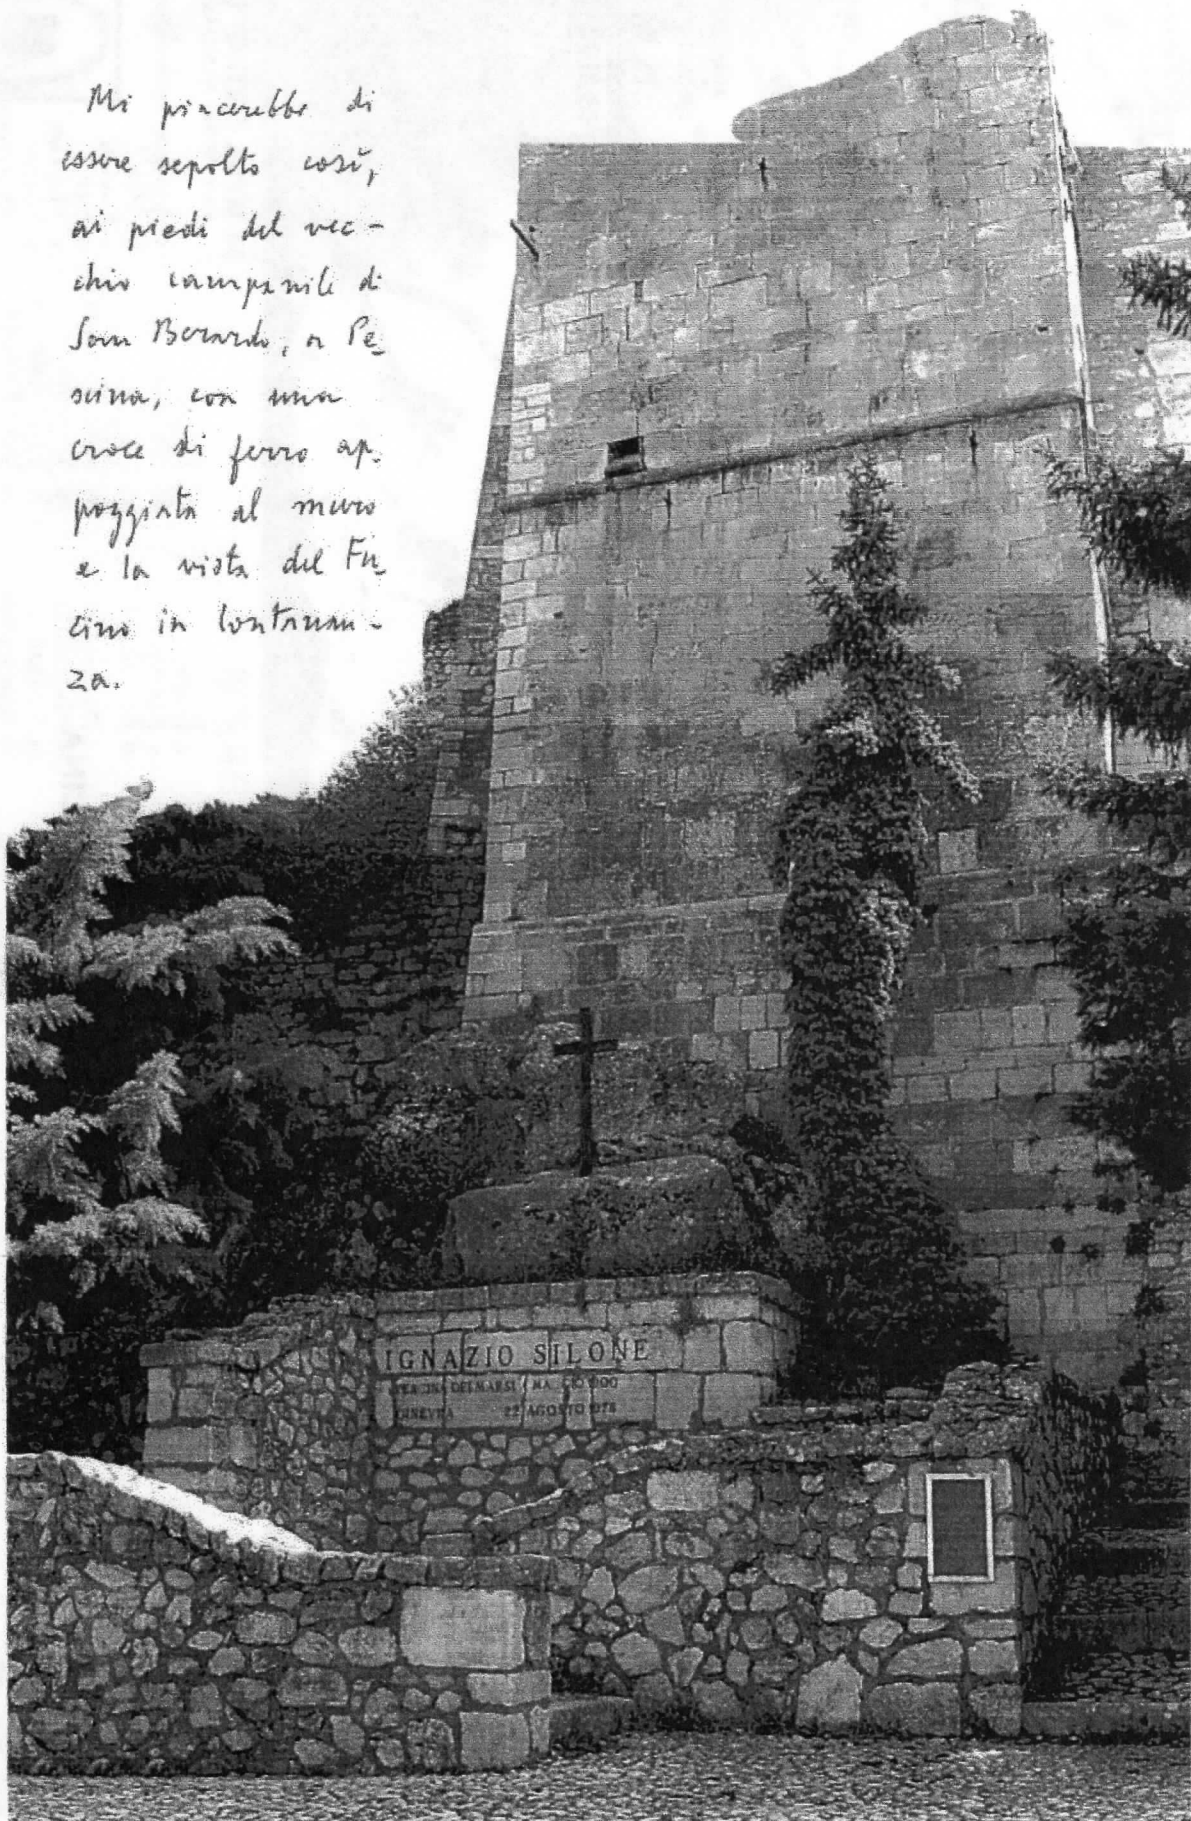 Mi piacerebbe di
essere sepolto così,
ai piedi del vec-
chio campanile di
San Berardo, a Pe-
scina, con una
croce di ferro ap-
poggiata al muro
e la vista del Fu-
cino in lontanan-
za.
IGNAZIO SILONE
DEI MARSI 1900
GINEVRA 22 AGOSTO 1978